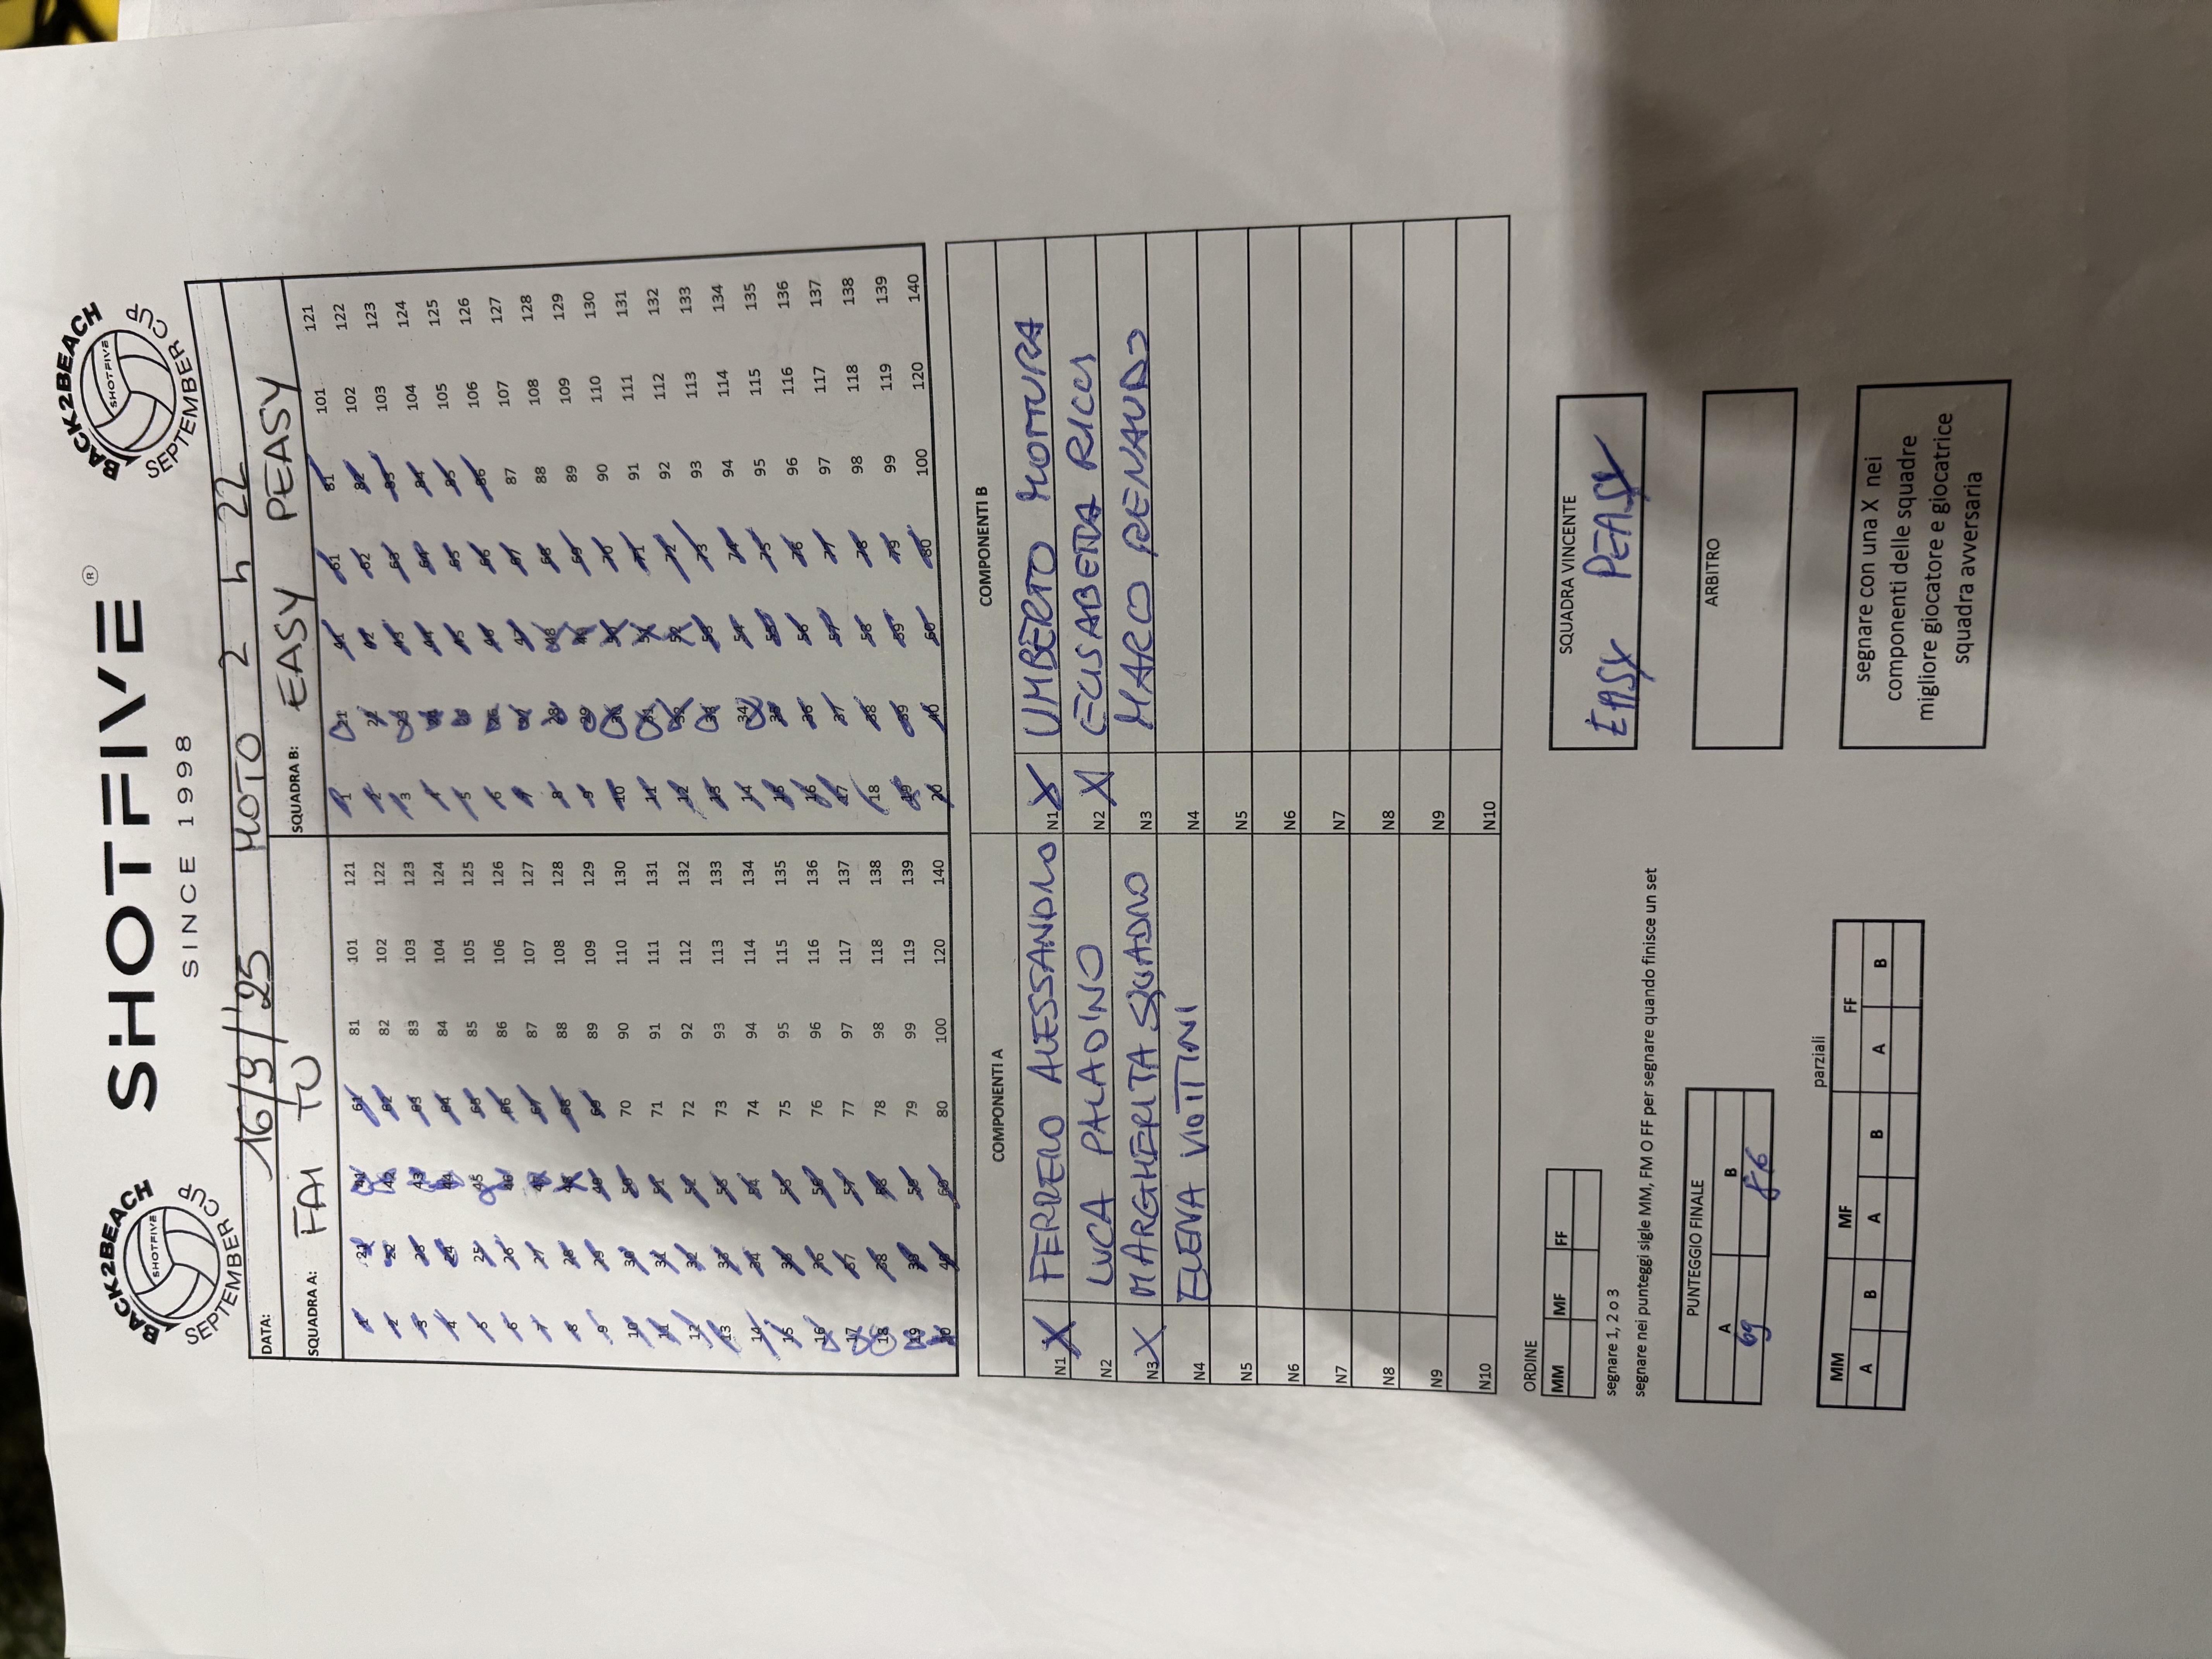 BACK2BEACH
SHOTFIVE
SEPTEMBER CUP
SHOTFIVE®
SINCE 1998
BACK2BEACH
SHOTFIVE
SEPTEMBER CUP
DATA: 16/9/'25 MOTO 2 h 22
SQUADRA A: FAM TO SQUADRA B: EASY PEASY
1 21 41 61 81 101 121 1 21 41 61 81 101 121
2 22 42 62 82 102 122 2 22 42 62 82 102 122
3 23 43 63 83 103 123 3 23 43 63 83 103 123
4 24 44 64 84 104 124 4 24 44 64 84 104 124
5 25 45 65 85 105 125 5 25 45 65 85 105 125
6 26 46 66 86 106 126 6 26 46 66 86 106 126
7 27 47 67 87 107 127 7 27 47 67 87 107 127
8 28 48 68 88 108 128 8 28 48 68 88 108 128
9 29 49 69 89 109 129 9 29 49 69 89 109 129
10 30 50 70 90 110 130 10 30 50 70 90 110 130
11 31 51 71 91 111 131 11 31 51 71 91 111 131
12 32 52 72 92 112 132 12 32 52 72 92 112 132
13 33 53 73 93 113 133 13 33 53 73 93 113 133
14 34 54 74 94 114 134 14 34 54 74 94 114 134
15 35 55 75 95 115 135 15 35 55 75 95 115 135
16 36 56 76 96 116 136 16 36 56 76 96 116 136
17 37 57 77 97 117 137 17 37 57 77 97 117 137
18 38 58 78 98 118 138 18 38 58 78 98 118 138
19 39 59 79 99 119 139 19 39 59 79 99 119 139
20 40 60 80 100 120 140 20 40 60 80 100 120 140
COMPONENTI A COMPONENTI B
N1 X FERRERO ALESSANDRO N1 X UMBERTO MOTTURA
N2 LUCA PALADINO N2 X ELISABETTA RICCI
N3 X MARGHERITA SQUADRO N3 MARCO RENAUDO
N4 ELENA VIOTTINI N4
N5 N5
N6 N6
N7 N7
N8 N8
N9 N9
N10 N10
ORDINE
MM MF FF
segnare 1, 2 o 3
segnare nei punteggi sigle MM, FM O FF per segnare quando finisce un set
PUNTEGGIO FINALE
A B
69 86
parziali
MM MF FF
A B A B A B
SQUADRA VINCENTE
EASY PEASY
ARBITRO
segnare con una X nei
componenti delle squadre
migliore giocatore e giocatrice
squadra avversaria